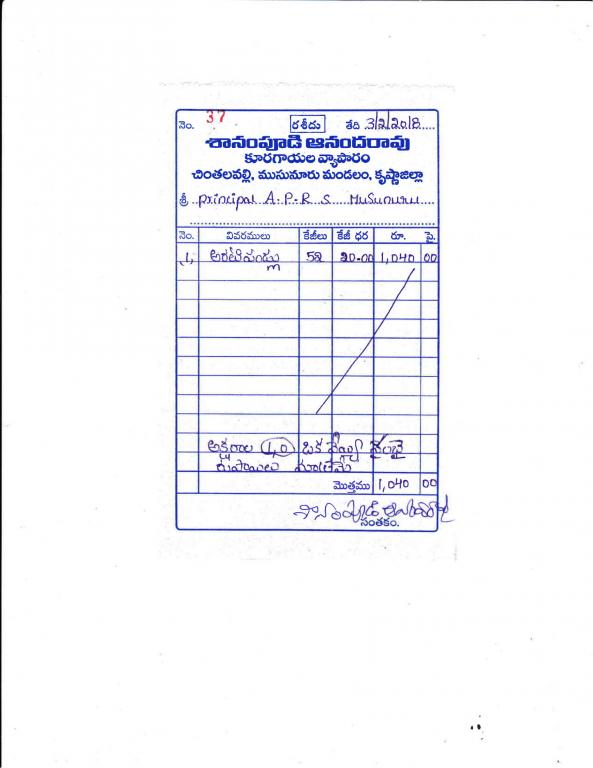 నెం. 37 రశీదు తేది 3/2/2018
శానంపూడి ఆనందరావు
కూరగాయల వ్యాపారం
చింతలవల్లి, ముసునూరు మండలం, కృష్ణాజిల్లా
శ్రీ principal A.P.R.S Musunuru
నెం. వివరములు కేజీలు కేజీ ధర రూ. పై.
1, అరటిపండ్లు 52 20-00 1,040 00
అక్షరాల ఒక
రుపాయలు మాత్రమే
మొత్తము 1,040 00
సంతకం.